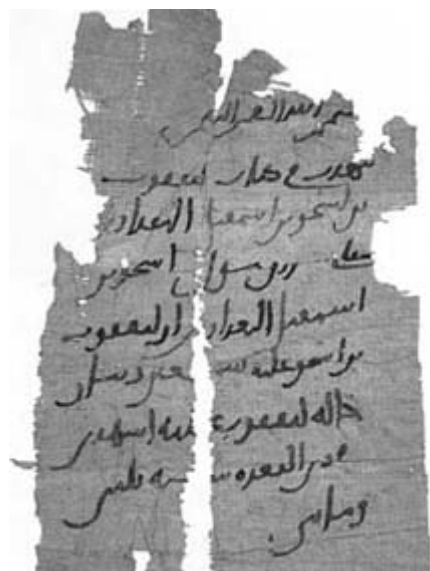 بسم الله الرحمن الرحيم
كتاب ليعقوب
بن اسحق بن اسمعيل البغدادي
على اسحق بن
اسمعيل البغدادي ان ليعقوب
بن اسحق عليه دينار
حاله ليعقوب عليه
في ذي القعدة سنة ثلثين
ومايتين